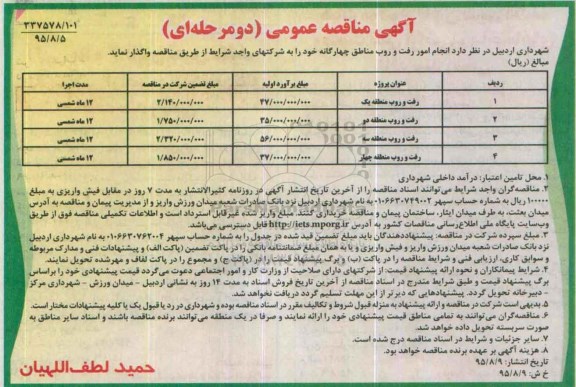 آگهی مناقصه عمومی (دومرحله‌ای)
۳۳۷۵۷۸/۱۰۱
۹۵/۸/۵
شهرداری اردبیل در نظر دارد انجام امور رفت و روب مناطق چهارگانه خود را به شرکتهای واجد شرایط از طریق مناقصه واگذار نماید.
مبالغ (ریال)
ردیف عنوان پروژه مبلغ برآورد اولیه مبلغ تضمین شرکت در مناقصه مدت اجرا
۱ رفت و روب منطقه یک ۴۷/۰۰۰/۰۰۰/۰۰۰ ۲/۱۴۰/۰۰۰/۰۰۰ ۱۲ ماه شمسی
۲ رفت و روب منطقه دو ۳۵/۰۰۰/۰۰۰/۰۰۰ ۱/۷۵۰/۰۰۰/۰۰۰ ۱۲ ماه شمسی
۳ رفت و روب منطقه سه ۵۶/۰۰۰/۰۰۰/۰۰۰ ۲/۳۲۰/۰۰۰/۰۰۰ ۱۲ ماه شمسی
۴ رفت و روب منطقه چهار ۳۷/۰۰۰/۰۰۰/۰۰۰ ۱/۸۵۰/۰۰۰/۰۰۰ ۱۲ ماه شمسی
۱. محل تامین اعتبار: درآمد داخلی شهرداری
۲. مناقصه‌گران واجد شرایط می‌توانند اسناد مناقصه را از آخرین تاریخ انتشار آگهی در روزنامه کثیرالانتشار به مدت ۷ روز در مقابل فیش واریزی به مبلغ
۱۰۰۰۰۰۰ ریال به شماره حساب سپهر ۰۱۰۶۶۳۰۷۴۹۰۰۲ به نام شهرداری اردبیل نزد بانک صادرات شعبه میدان ورزش واریز و از مدیریت پیمان و مناقصه به آدرس
میدان بعثت، به طرف میدان ایثار، ساختمان پیمان و مناقصه خریداری کنند. مبلغ واریز شده غیرقابل استرداد است و اطلاعات تکمیلی مناقصه فوق از طریق
وب‌سایت پایگاه ملی اطلاع‌رسانی مناقصات کشور به آدرس http://iets.mporg.ir قابل دسترسی می‌باشد.
۳. مبلغ سپرده شرکت در مناقصه: پیشنهاددهندگان باید مبلغ تضمین قید شده در جدول را به شماره حساب سپهر ۰۱۰۶۶۳۰۷۶۲۰۰۴ به نام شهرداری اردبیل
نزد بانک صادرات شعبه میدان ورزش واریز و فیش واریزی و یا به همان مبلغ ضمانتنامه بانکی را در پاکت تضمین (پاکت الف) و پیشنهادات فنی و مدارک مربوطه
و سوابق کاری، ارزیابی فنی و شرایط مناقصه را در پاکت (ب) و برگ پیشنهاد قیمت را در (پاکت ج) و مجموع را در پاکت لفاف و مهرشده تحویل نمایند.
۴. شرایط پیمانکاران و نحوه ارائه پیشنهاد قیمت: از شرکتهای دارای صلاحیت از وزارت کار و امور اجتماعی دعوت می‌گردد قیمت پیشنهادی خود را براساس
برگ پیشنهاد قیمت و طبق شرایط مندرج در اسناد مناقصه از آخرین تاریخ فروش اسناد به مدت ۱۴ روز به نشانی اردبیل - میدان ورزش - شهرداری مرکز
- دبیرخانه تحویل گردد. پیشنهادهایی که دیرتر از این مهلت تسلیم گردد دریافت نخواهد شد.
۵. بدیهی است شرکت در مناقصه و ارائه پیشنهاد به منزله قبول شروط و تکالیف مقرر در اسناد مناقصه بوده و شهرداری در رد یا قبول یک یا کلیه پیشنهادات مختار است.
۶. مناقصه‌گران می‌توانند به تمامی مناطق قیمت پیشنهادی خود را ارائه نمایند و صرفا در یک منطقه می‌توانند برنده مناقصه باشند و اسناد سایر مناطق به
صورت سربسته تحویل داده خواهد شد.
۷. سایر جزئیات و شرایط در اسناد مناقصه درج شده است.
۸. هزینه آگهی بر عهده برنده مناقصه خواهد بود.
تاریخ انتشار: ۹۵/۸/۹
خ ش: ۹۵/۸/۹
حمید لطف‌اللهیان